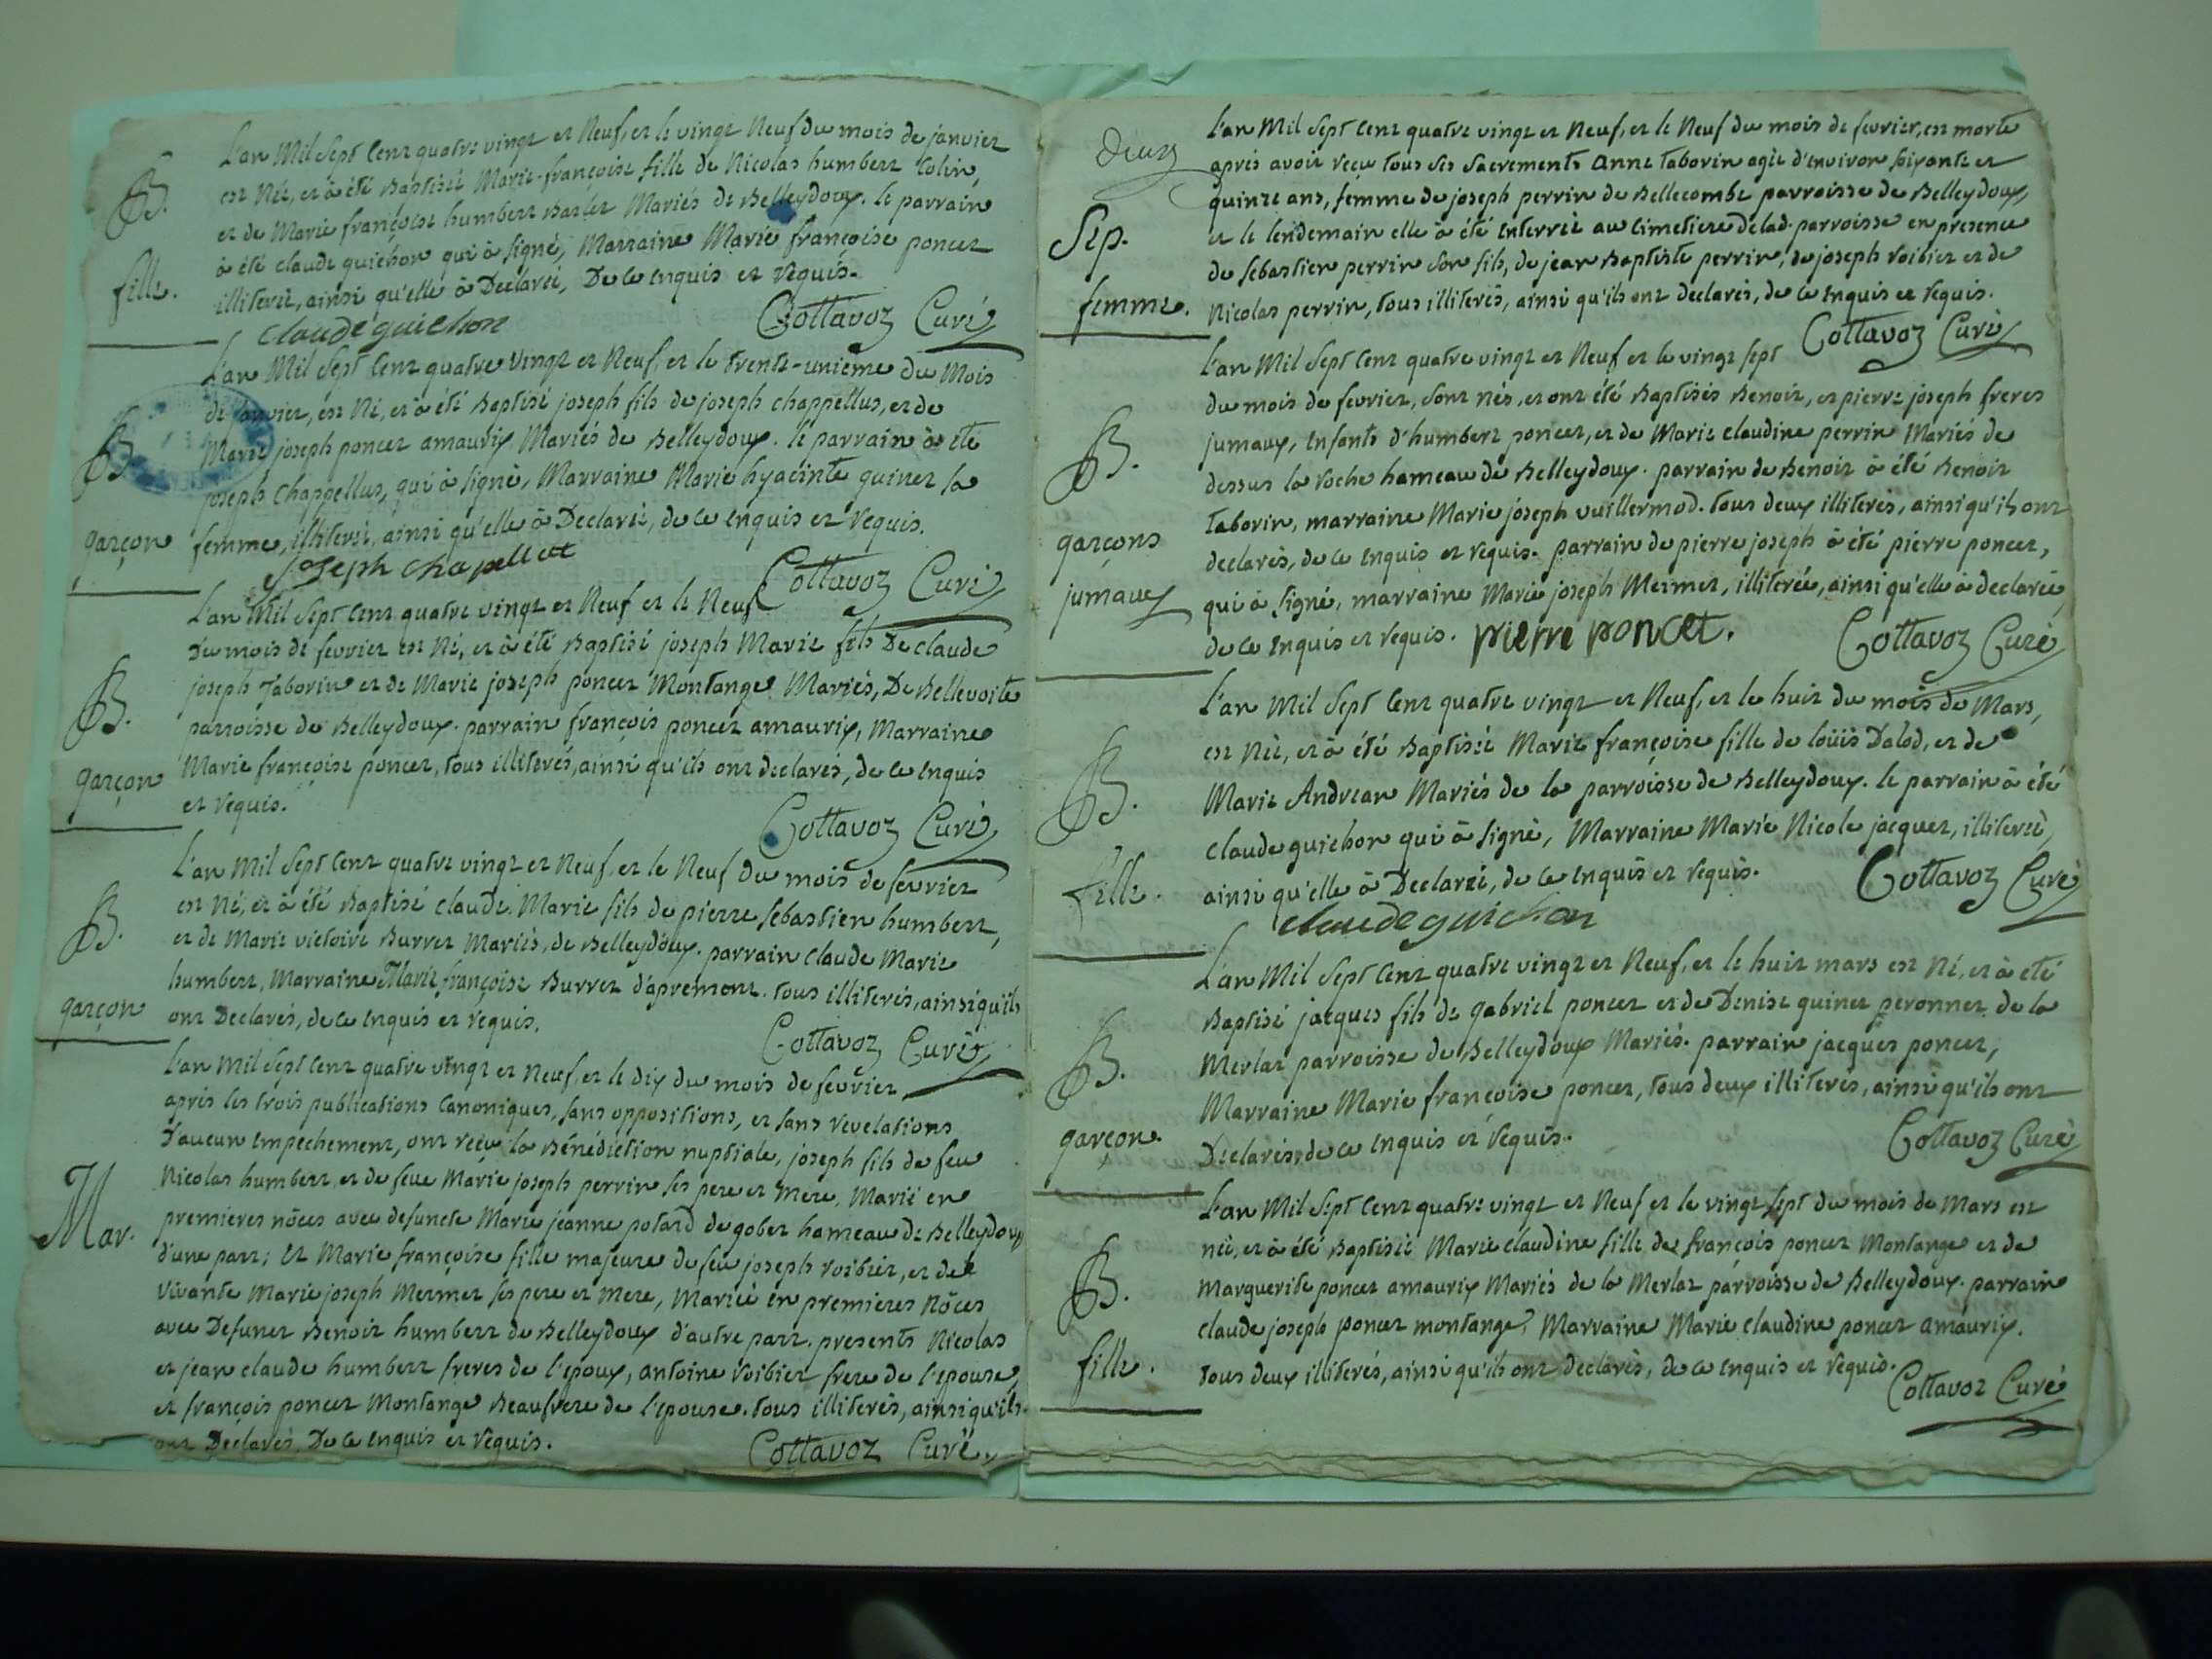 B.
fille.
L'an Mil Sept Cent quatre vingt et Neuf, et le vingt Neuf du mois de janvier
est Née, et à été Baptisée Marie-françoise fille de Nicolas humbert Colin,
et de Marie françoise humbert Barlet Mariés de Belleydoux. le parrain
à été claude guichon qui à signé, Marraine Marie françoise poncet
illiterée, ainsi qu'elle à Declarée, De ce enquis et requis.
claude guichon Cottavoz Curé
B.
garçon
L'an Mil Sept Cent quatre vingt et Neuf, et le trente-unieme du Mois
de janvier, est Né, et à été Baptisé joseph fils de joseph chappellus, et de
Marie joseph poncet amaurix Mariés de Belleydoux. le parrain à été
joseph chappellus, qui à signé, Marraine Marie hyacinte guinet sa
femme, illiterée, ainsi qu'elle à Declarée, de ce enquis et requis.
joseph chapellut Cottavoz Curé
B.
garçon
L'an Mil Sept Cent quatre vingt et Neuf et le Neuf
Du mois de fevrier est Né, et à été Baptisé joseph Marie fils De claude
joseph Taborin et de Marie joseph poncet Montange Mariés, De Bellevoite
parroisse de Belleydoux. parrain françois poncet amaurix, Marraine
Marie françoise poncet, tous illiterés, ainsi qu'ils ont declarés, de ce enquis
et requis.
Cottavoz Curé
B.
garçon
L'an Mil Sept Cent quatre vingt et Neuf, et le Neuf Du mois de fevrier
est Né, et à été Baptisé claude Marie fils de pierre sebastien humbert,
et de Marie victoire Burret Mariés, de Belleydoux. parrain claude Marie
humbert, Marraine Marie françoise Burret d'apremont. tous illiterés, ainsi qu'ils
ont Declarés, de ce enquis et requis.
Cottavoz Curé
Mar.
L'an Mil Sept Cent quatre vingt et Neuf, et le dix du mois de fevrier,
après les trois publications Canoniques, sans oppositions, et sans revelations
D'aucun Empechement, ont reçu la Bénédiction nuptiale, joseph fils de feu
Nicolas humbert, et de feue Marie joseph perrin ses pere et mere, Marié en
premieres nôces avec defuncte Marie jeanne potard de gobet hameau de Belleydoux
d'une part; Et Marie françoise fille majeure de feu joseph roibier, et de
vivante Marie joseph Mermet ses pere et mere, mariée en premieres Nôces
avec Defunct Benoit humbert de Belleydoux d'autre part. presents Nicolas
et jean claude humbert freres de l'epoux, antoine roibier frere de l'epouse,
et françois poncet Montange Beaufrere de l'epouse. tous illiterés, ainsi qu'ils
ont Declarés, De ce enquis et requis. Cottavoz Curé
Deux
Sep.
femme.
L'an Mil Sept Cent quatre vingt et Neuf, et le Neuf du mois de fevrier, est morte
après avoir reçu tous ses Sacrements anne taborin agée d'environ soixante et
quinze ans, femme de joseph perrin de Bellecombe parroisse de Belleydoux,
et le lendemain elle à été enterrée au cimetiere de lad. parroisse en presence
de sebastien perrin son fils, de jean Baptiste perrin, de joseph roibier et de
Nicolas perrin, tous illiterés, ainsi qu'ils ont declarés, de ce enquis et requis.
Cottavoz Curé
B.
garçons
jumaux
L'an Mil Sept Cent quatre vingt et Neuf et le vingt sept
du mois de fevrier, sont nés, et ont été Baptisés Benoit, et pierre joseph freres
jumaux, enfants d'humbert poncet, et de Marie claudine perrin Mariés de
dessus la roche hameau de Belleydoux. parrain de Benoit à été Benoit
taborin, marraine Marie joseph vuillermod. tous deux illiterés, ainsi qu'ils ont
declarés, de ce enquis et requis. parrain de pierre joseph à été pierre poncet,
qui à signé, marraine Marie joseph Mermet, illiterée, ainsi qu'elle à declarée,
de ce enquis et requis. pierre poncet. Cottavoz Curé
B.
fille.
L'an Mil Sept Cent quatre vingt et Neuf, et le huit du mois de Mars,
est Née, et à été Baptisée Marie françoise fille de loüis Dalod, et de
Marie Andrean Mariés de la parroisse de Belleydoux. le parrain à été
claude guichon qui à signé, Marraine Marie Nicole jacquet, illiterée,
ainsi qu'elle à Declarée, de ce enquis et requis. Cottavoz Curé
claude guichon
B.
garçon.
L'an Mil Sept Cent quatre vingt et Neuf, et le huit mars est Né, et à été
Baptisé jacques fils de gabriel poncet et de Denise guinet peronnet de la
Merlat parroisse de Belleydoux Mariés. parrain jacques poncet,
Marraine Marie françoise poncet, tous deux illiterés, ainsi qu'ils ont
Declarés, de ce enquis et requis. Cottavoz Curé
B.
fille.
L'an Mil Sept Cent quatre vingt et Neuf et le vingt sept du mois de Mars est
née, et à été Baptisée Marie claudine fille de françois poncet Montange et de
Marguerite poncet amaurix Mariés de la Merlat parroisse de Belleydoux. parrain
claude joseph poncet montange, Marraine Marie claudine poncet amaurix.
tous deux illiterés, ainsi qu'ils ont declarés, de ce enquis et requis.
Cottavoz Curé